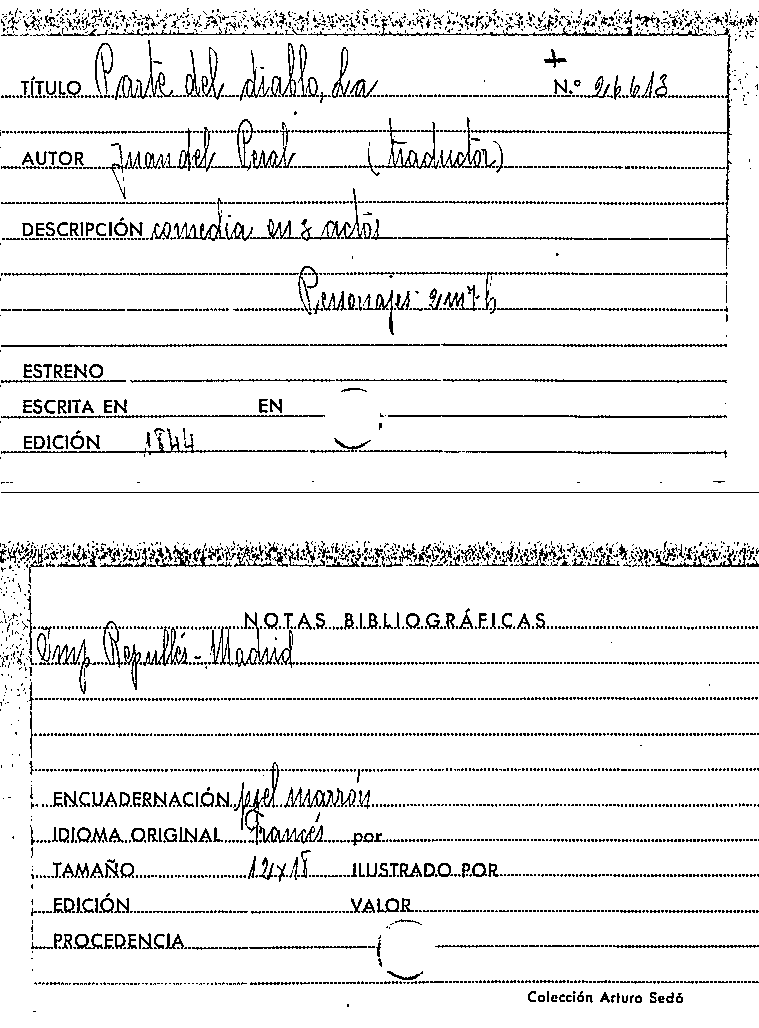 TÍTULO Parte del diablo, La
+
N.º 26613
AUTOR Juan del Peral (traductor)
DESCRIPCIÓN comedia en 3 actos
Personajes 2m 7h
ESTRENO
ESCRITA EN EN
EDICIÓN 1844
NOTAS BIBLIOGRÁFICAS
Imp Repullés - Madrid
ENCUADERNACIÓN piel marrón
IDIOMA ORIGINAL Francés por
TAMAÑO 12x18 ILUSTRADO POR
EDICIÓN VALOR
PROCEDENCIA
Colección Arturo Sedó